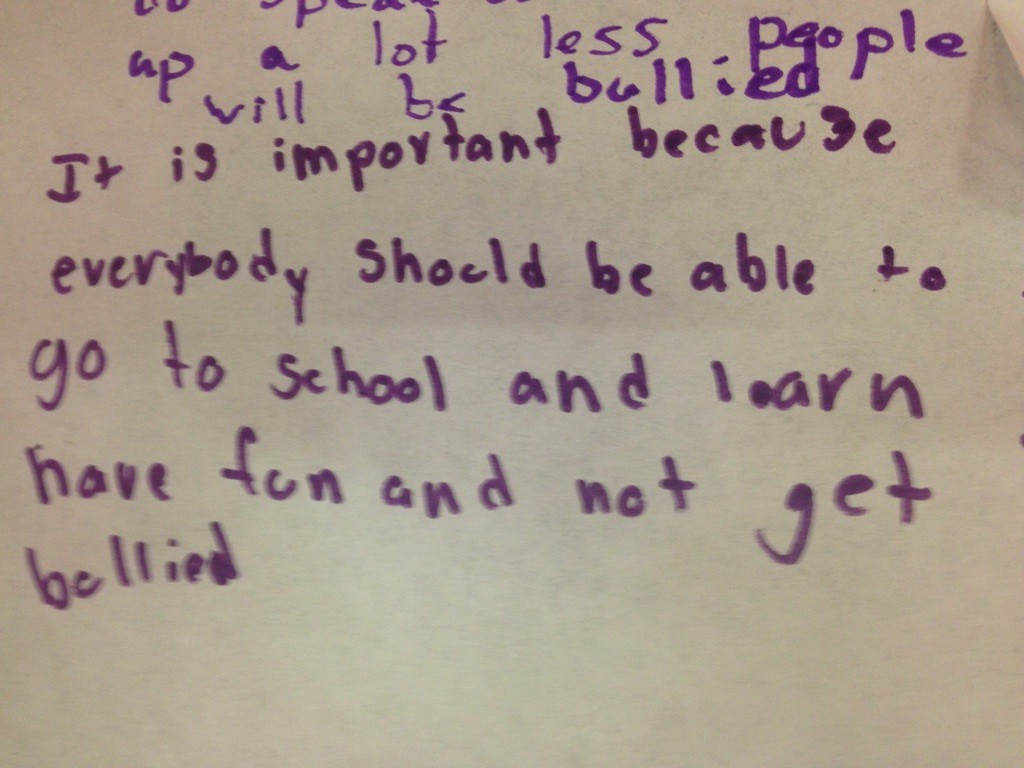 to speak
up a lot less people
will be bullied
It is important because
everybody should be able to
go to school and learn
have fun and not get
bullied